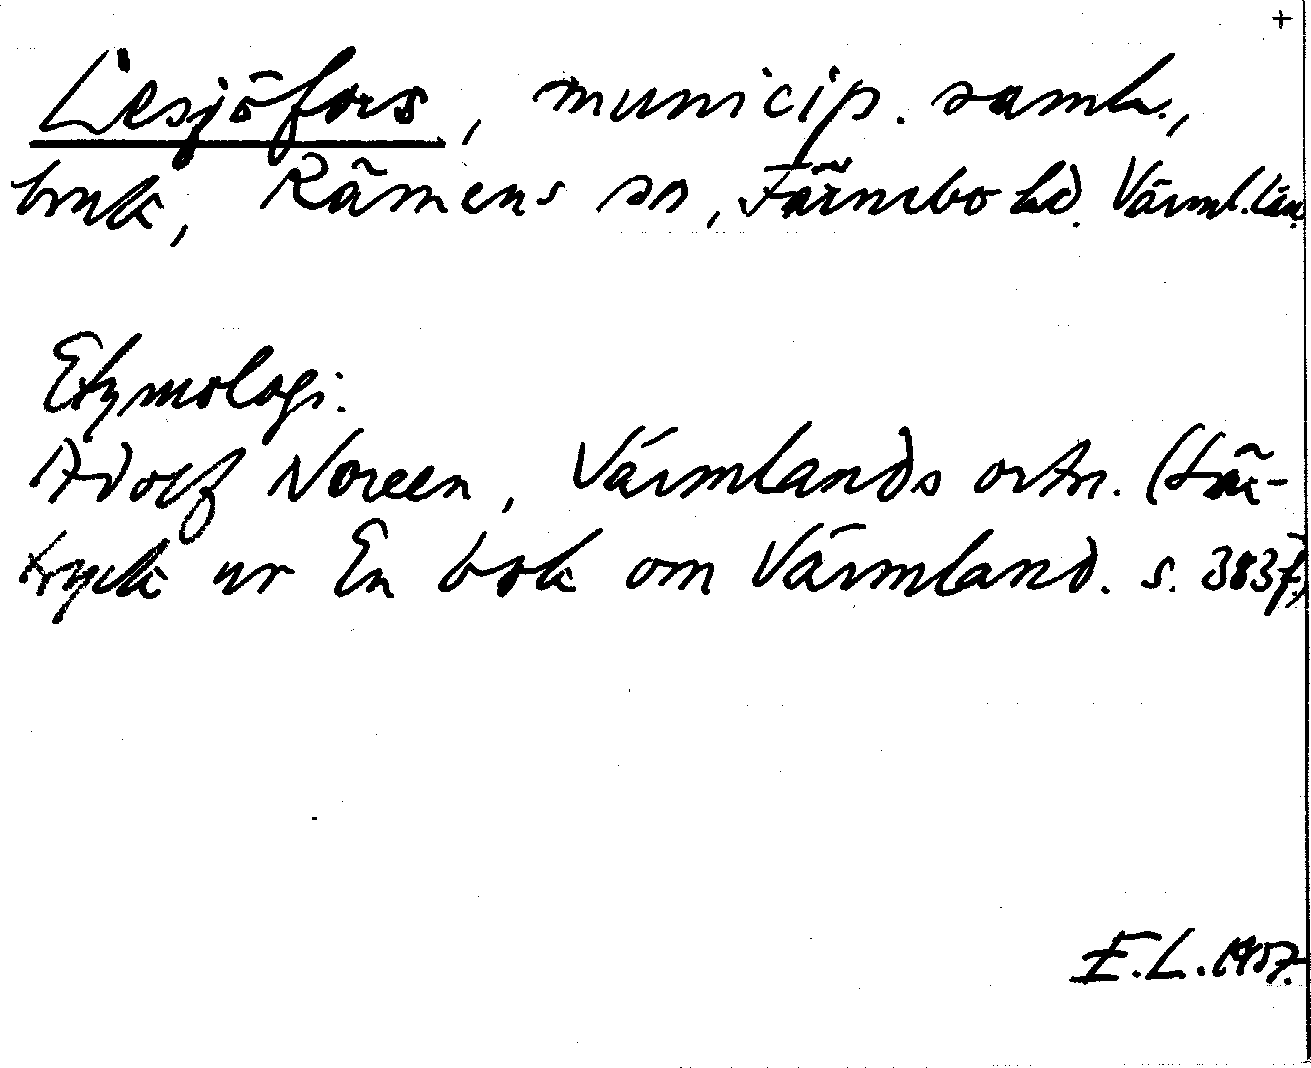 +
Lesjöfors, municip. samh.,
bruk, Rämens sn, Färnebo hd. Värml. län.
Etymologi:
Adolf Noreen, Värmlands ortn. (Sär-
tryck ur En bok om Värmland. s. 383 f.)
E.L. 1957.